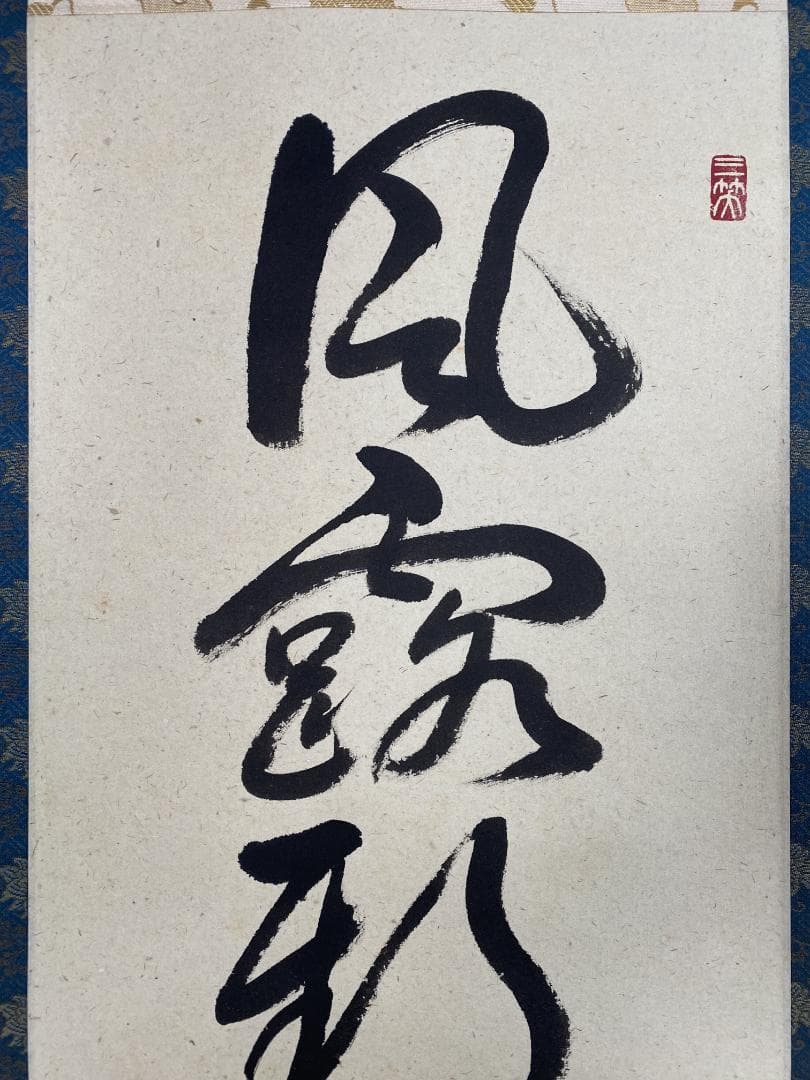 三笑
風露新